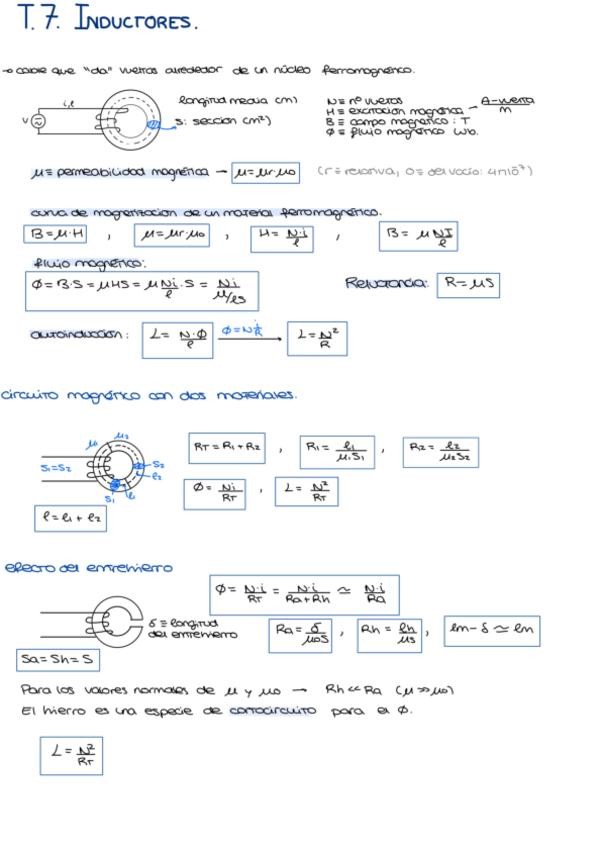 T.7. INDUCTORES.
→ cable que "da" vueltas alrededor de un núcleo ferromagnético.
i, l
V
longitud media (m)
S: sección (m²)
N ≡ nº vueltas
H ≡ excitación magnética – A-vuelta/m
B ≡ campo magnético: T
Φ ≡ flujo magnético Wb.
μ ≡ permeabilidad magnética → μ = μr·μ0 (r ≡ relativa, 0 ≡ del vacío: 4π10⁻⁷)
curva de magnetización de un material ferromagnético.
B = μ·H , μ = μr·μ0 , H = N·i/l , B = μ NI/l
flujo magnético:
Φ = B·S = μHS = μ Ni/l ·S = Ni / μ/lS
Reluctancia: R = μS
autoinducción: L = N·Φ/l Φ = N i/R → L = N²/R
circuito magnético con dos materiales.
μ1 μ2
S1=S2
S2
l2
S1 l1
l = l1 + l2
RT = R1 + R2 , R1 = l1/μ1S1 , R2 = l2/μ2S2
Φ = Ni/RT , L = N²/RT
efecto del entrehierro
δ ≡ longitud del entrehierro
Sa = Sh = S
Φ = N·i/RT = N·i/Ra+Rh ≃ N·i/Ra
Ra = δ/μ0S , Rh = lh/μS , lm - δ ≃ lm
Para los valores normales de μ y μ0 → Rh << Ra (μ >> μ0)
El hierro es una especie de cortocircuito para el Φ.
L = N²/RT